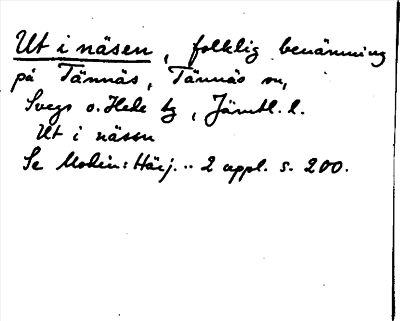 Ut i näsen, folklig benämning
på Tännäs, Tännäs sn,
Svegs o. Hede tg, Jämtl. l.
Ut i näsen
Se Modin: Härj. .. 2 uppl. s. 200.